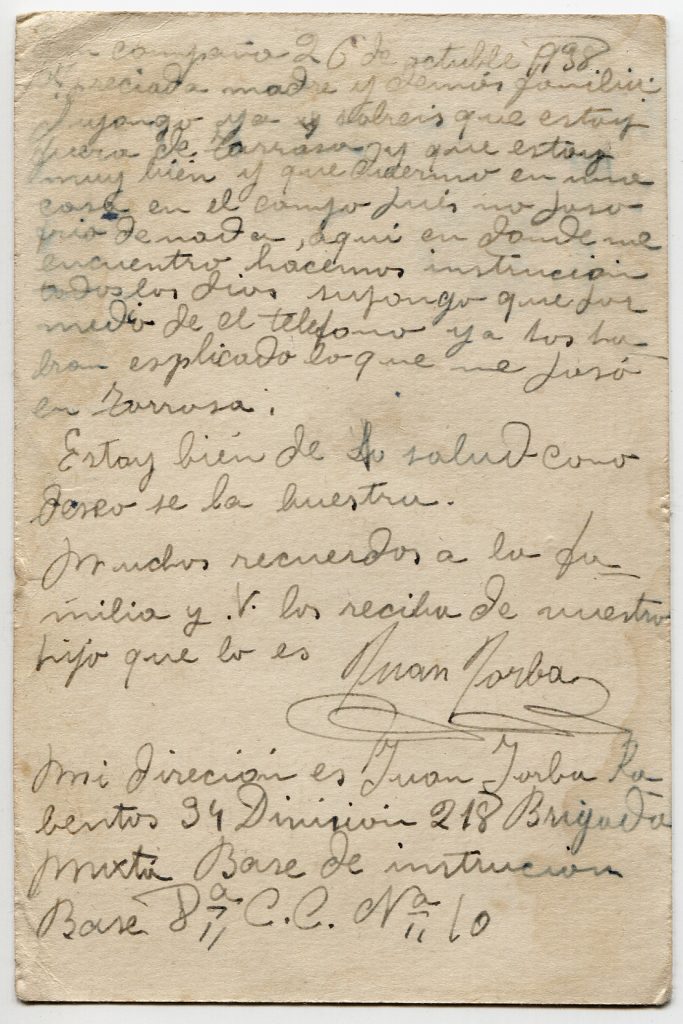 En campaña 26 de octubre 1938
Apreciada madre y demás familia:
Supongo ya y sabreis que estoy
fuera de Tarrasa y que estoy
muy bién y que duermo en una
casa en el campo pués no paso
frio de nada, aqui en donde me
encuentro hacemos instrución
todos los dias supongo que por
medio de el teléfono ya hos ha-
bran esplicado lo que me pasó
en Tarrasa.
Estoy bién de la salud como
deseo se la buestra.
Muchos recuerdos a la fa-
milia y V. los reciba de nuestro
hijo que lo es Juan Jorba
Mi direción es Juan Jorba Ra
bentos 34 Division 218 Brigada
Mixta Base de instrucion
Base D a C.C. Na 10